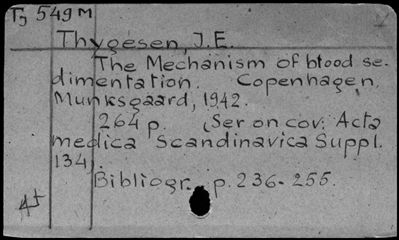 Tg 549M
Thygesen, J.E.
The Mechanism of blood se-
dimentation. Copenhagen,
Munksgaard, 1942.
264 p. (Ser on cov: Acta
medica Scandinavica Suppl.
134).
Bibliogr. p. 236-255.